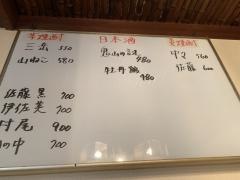 芋焼酎
三岳 550
山ねこ 580
佐藤黒 700
伊佐美 700
村尾 900
の中 700
日本酒
980
牡丹鶴
980
麦焼酎
中々 560
佐藤 600